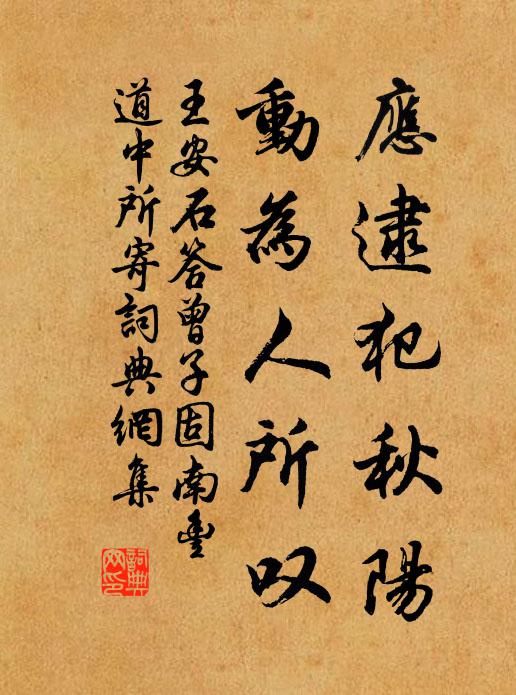 應逮犯秋陽
動為人所叹
王安石答曾子固南豐
道中所寄詞典網集
詞典網印